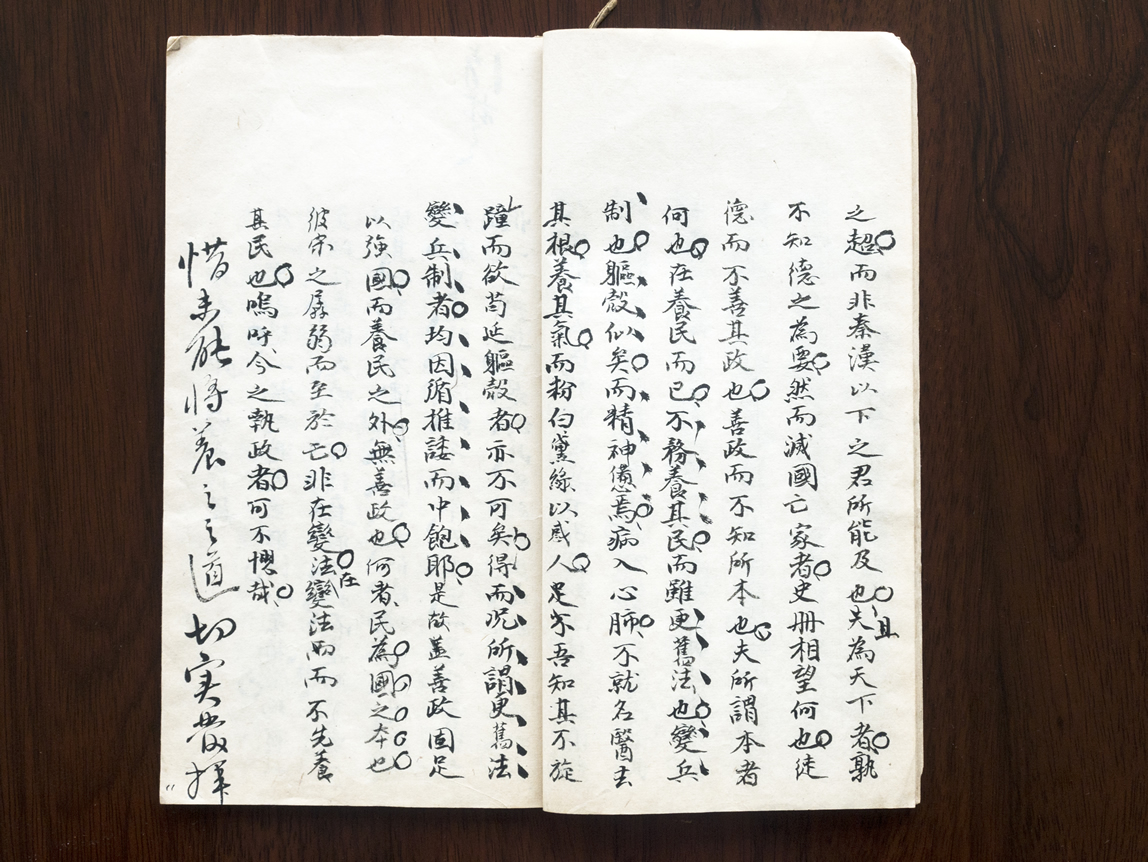 之超而非秦漢以下之君所能及也且夫為天下者孰
不知德之為要然而滅國亡家者史冊相望何也徒
德而不善其政也善政而不知所本也夫所謂本者
何也在養民而已不務養其民而雖更舊法也變兵
制也軀殼似矣而精神憊焉病入心肺不就名醫去
其根養其氣而粉白黛綠以惑人足乎吾知其不旋
踵而欲苟延軀殼者亦不可矣得而況所謂更舊法
變兵制者均因循推諉而中飽耶是故蓋善政固足
以強國而養民之外無善政也何者民為國之本也
彼宋之孱弱而至於亡非在變法在變法而不先養
其民也嗚呼今之執政者可不懼哉
惜未能將養之之道切实發揮